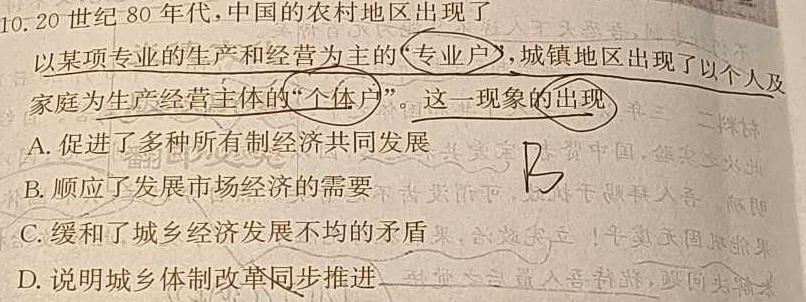 10. 20世纪80年代,中国的农村地区出现了
以某项专业的生产和经营为主的“专业户”,城镇地区出现了以个人及
家庭为生产经营主体的“个体户”。这一现象的出现
A. 促进了多种所有制经济共同发展
B. 顺应了发展市场经济的需要
B
C. 缓和了城乡经济发展不均的矛盾
D. 说明城乡体制改革同步推进